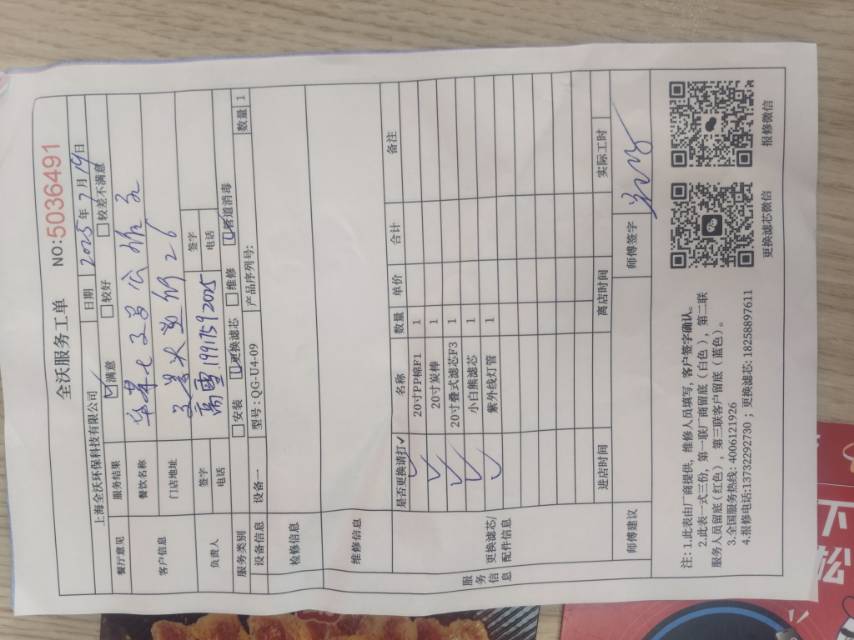 全沃服务工单 NO:5036491
上海全沃环保科技有限公司 日期 2025年7月19日
餐厅意见 服务结果 满意 较好 较差不满意
客户信息 餐饮名称
门店地址
负责人 签字 签字
电话 19917592025 电话
服务类别 安装 更换滤芯 维修 管道消毒
设备信息 设备一 型号:QG-U4-09 产品序列号: 数量 1
检修信息
维修信息
服务信息 更换滤芯/配件信息
是否更换请打✓ 名称 数量 单价 合计 备注
✓ 20寸PP棉F1 1
✓ 20寸炭棒 1
✓ 20寸叠式滤芯F3 1
✓ 小白熊滤芯 1
✓ 紫外线灯管 1
进店时间 离店时间 实际工时
师傅建议 师傅签字
注:1.此表由厂商提供,维修人员填写,客户签字确认。
2.此表一式三份,第一联厂商留底(白色),第二联
服务人员留底(红色),第三联客户留底(蓝色)。
3.全国服务热线:4006121926
4.报修电话:13732292730;更换滤芯:18258897611
更换滤芯微信 报修微信